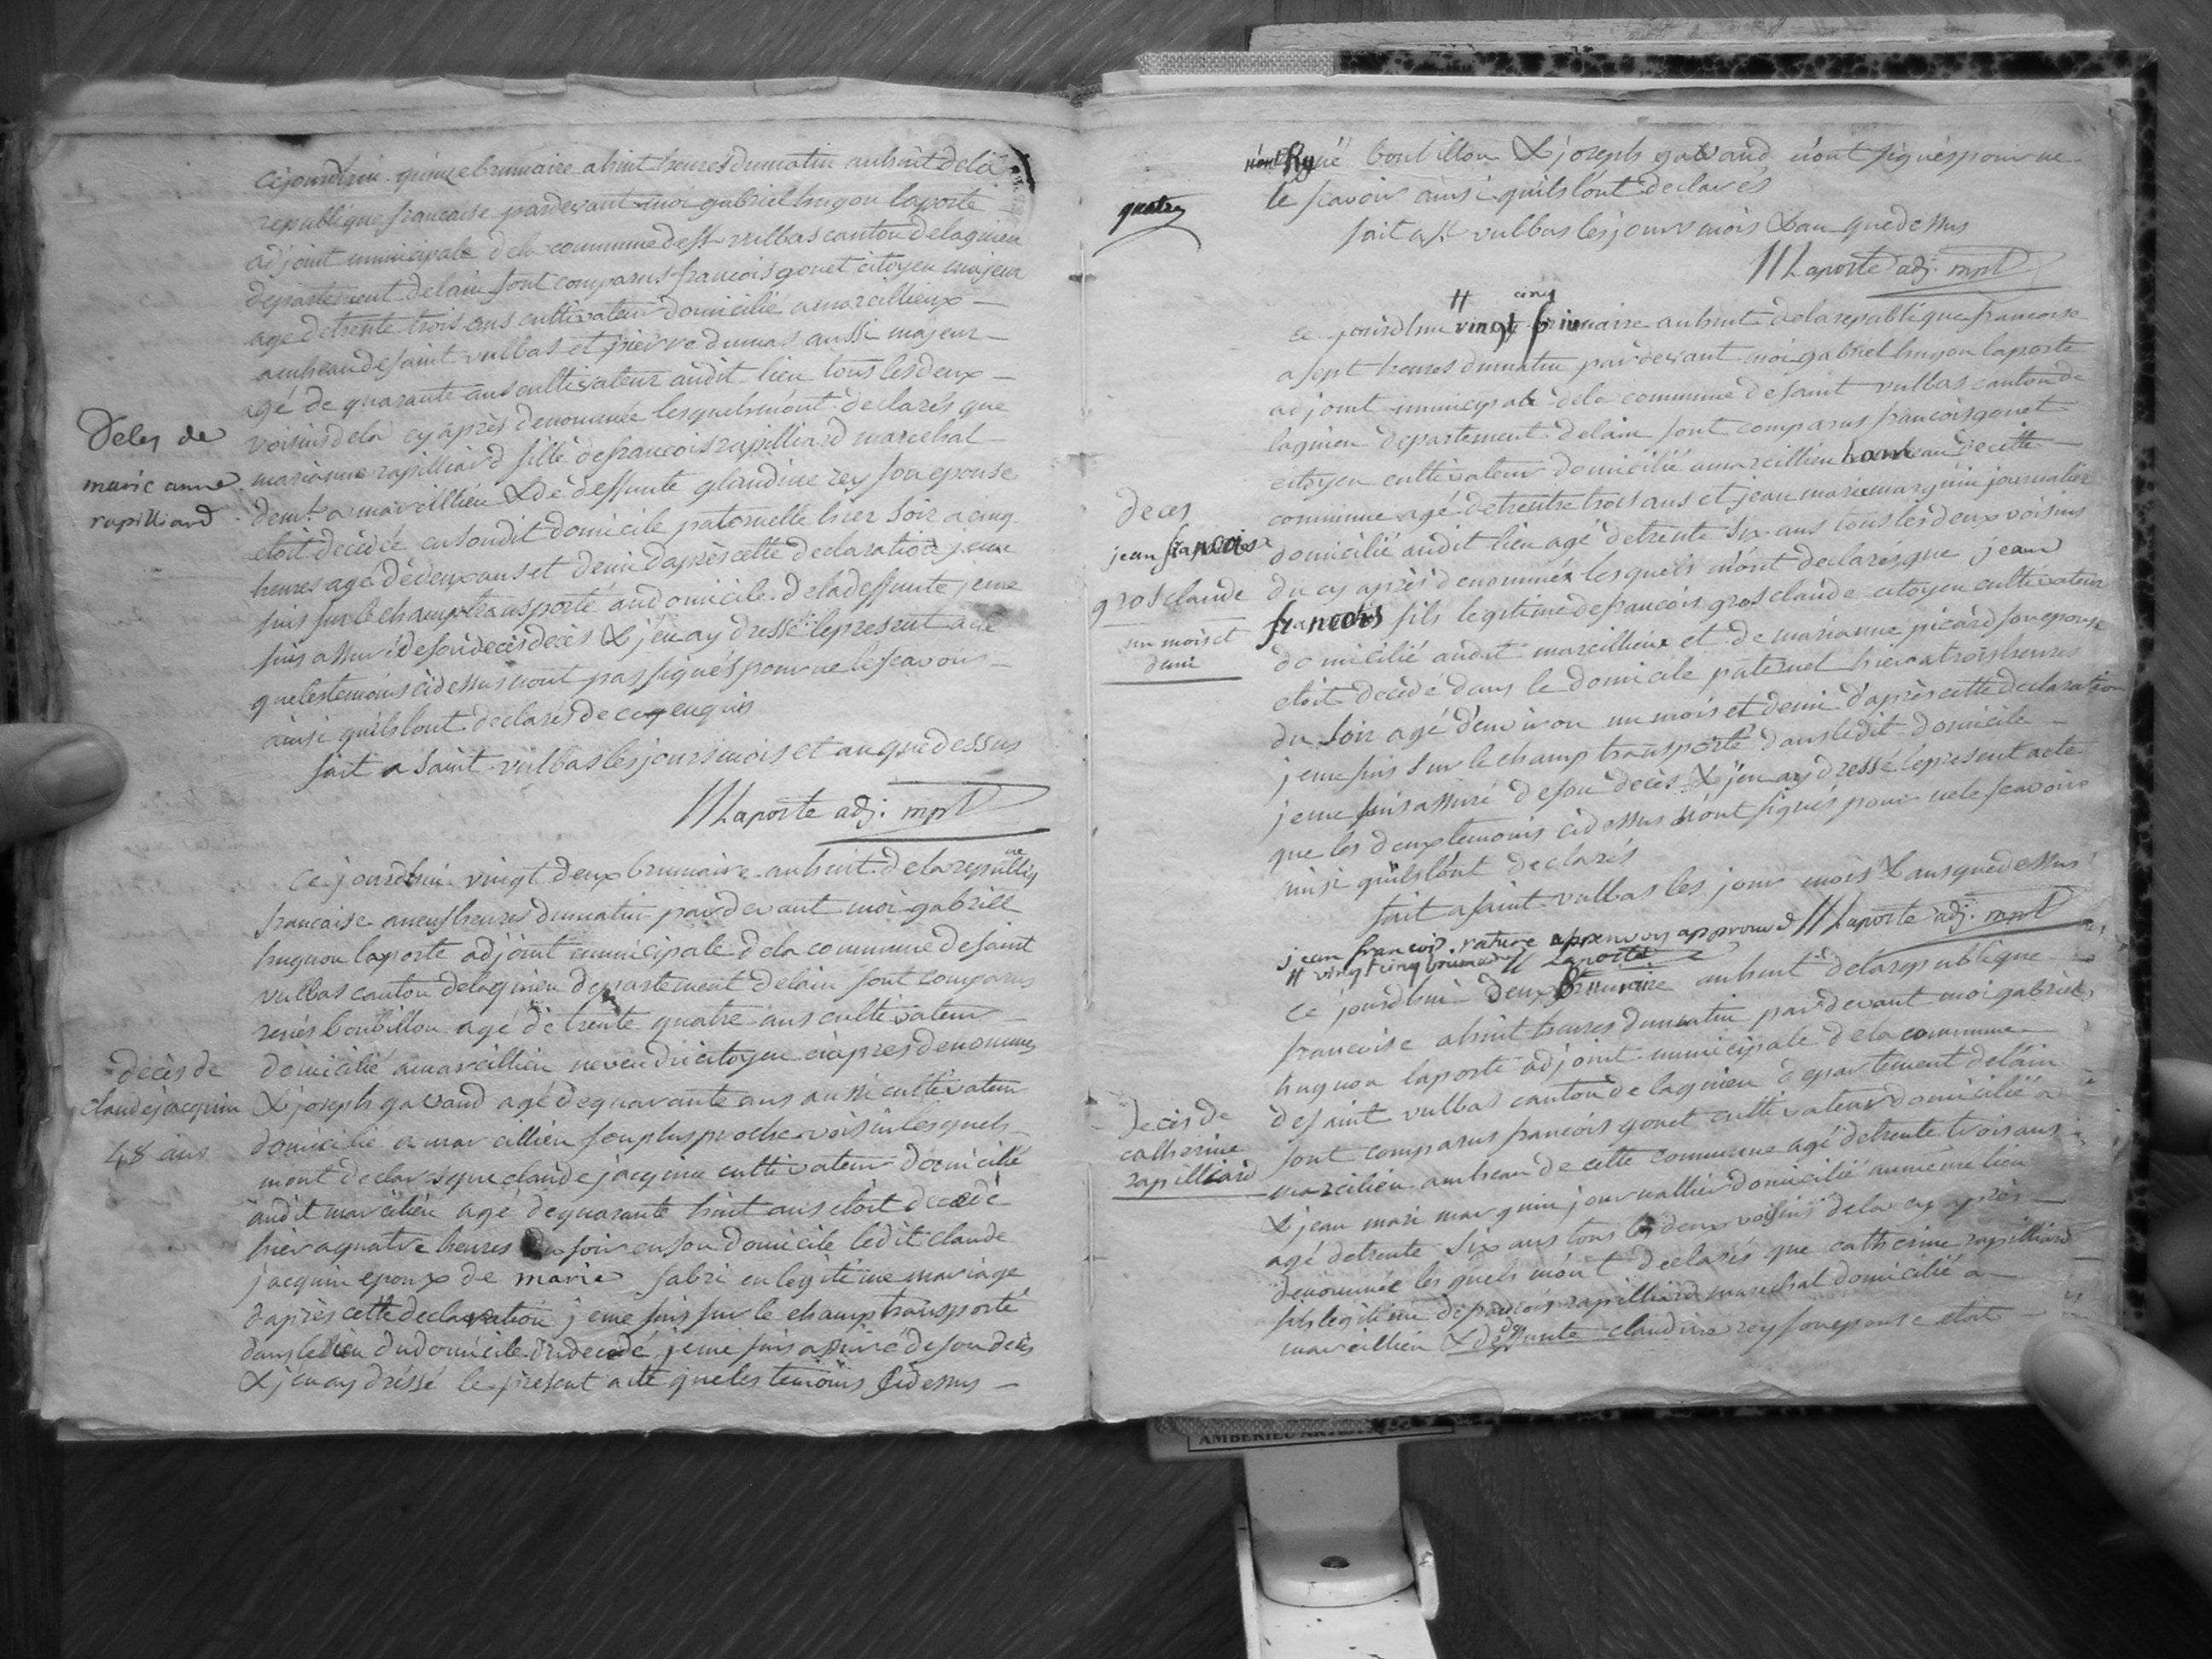 cejourdhui quinze brumaire a huit heures du matin an huit dela
republique francaise pardevant moi gabriel hugon laporte
adjoint municipale dela commune de st vulbas canton de lagnieu
departement delain sont comparus francois gonet citoyen majeur
age detrente trois ans cultivateur domicilié a marcillieux —
amheau de saint vulbas et pierre dumas aussi majeur —
agé de quarante ans cultivateur audit lieu tous les deux —
voisins dela cy après denommée lesquels m'ont declarés que
Deces de
marie anne
rapilliard
marianne rapilliard fille de francois rapilliard marechal —
demt a marcillieu & de deffunte glaudine rey son epouse
etoit decedée en soudit domicile paternelle hier soir a cinq
heures agé de deux ans et demi d'après cette declaration je me
suis sur le champ transporté au domicile dela deffunte je me
suis assuré de son deces deces & j'en ay dressé le present acte
que les temoins cidessus n'ont pas signés pour ne le scavoir —
ainsi quils l'ont declarés de ce enquis
fait a saint vulbas les jours mois et an que dessus
Laporte adj. mpl
Ce jourdhui vingt deux brumaire an huit dela republique
francaise a neuf heures du matin pardevant moi gabriel
hugnon laporte adjoint municipale dela commune de saint
vulbas canton delagnieu departement delain sont comparus
renés boubillon agé de trente quatre ans cultivateur —
domicilié a marcillieu neveu du citoyen ciapres denommés
decès de
claude jacquin
48 ans
& joseph gavand agé de quarante ans aussi cultivateur
domicilié a marcillieu son plus proche voisin lesquels
mont declarés que claude jacquin cultivateur domicilié
audit marcilieu agé de quarante huit ans etoit decedé
hier a quatre heures du soir en son domicile ledit claude
jacquin epoux de marie fabri en legitime mariage
d'après cette declaration je me suis sur le champ transporté
dans le lieu du domicile du decedé je me suis assuré de son deces
& j'en ay dréssé le présent acte que les temoins cidessus —
quatre
n'ont René boubillon & joseph gavand n'ont signés pour ne
le scavoir ainsi quils l'ont declarés
fait a st vulbas les jours mois & an que dessus
Laporte adj. mpl
cinq
ce jourdhui vingt brumaire an huit dela republique francoise
a sept heures du matin pardevant moi gabriel hugon laporte
adjoint municipale dela commune de saint vulbas canton de
lagnieu departement delain sont comparus francois gonet
citoyen cultivateur domicilié a marcillieu hameau de cette
commune agé de trentre trois ans et jean marie marguin journalier
deces
jean francois
grosclaude
un mois et
demi
domicilié audit lieu agé de trente six ans tous les deux voisins
du cy après denommés lesquels m'ont declarés que jean
francois fils legitime de francois grosclaude citoyen cultivateur
domicilié audit marcillieux et de marianne picard son epouse
etoit decedé dans le domicile paternel hier a trois heures
du soir agé denviron un mois et demi d'après cette declaration
je me suis sur le champ transporté dans ledit domicile —
je me suis assuré de son deces & j'en ay dressé le present acte
que les deux temoins cidessus n'ont signés pour ne le scavoir
ainsi quils l'ont declarés
fait a saint vulbas les jour mois & ans que dessus
jean francois. rature approuvé Laporte adj. mpl
vingt cinq brumaire Laporte
Ce jourdhui deux frimaire an huit dela republique
francoise a huit heures du matin pardevant moi gabriel
hugnon laporte adjoint municipale dela commune
de saint vulbas canton de lagnieu departement delain
decès de
catherine
rapilliard
sont comparus francois gonet cultivateur domicilié a
marcilieu amheau de cette commune agé de trente trois ans
& jean mari marguin journallier domicilié au même lieu
agé de trente six ans tous les deux voisins dela cy après —
denommée lesquels m'ont declarés que catherine rapilliard
fils legitime de francois rapilliard marechal domicilié a —
marcillieu & de deffunte claudine rey son epouse etoit
AMBERIEU